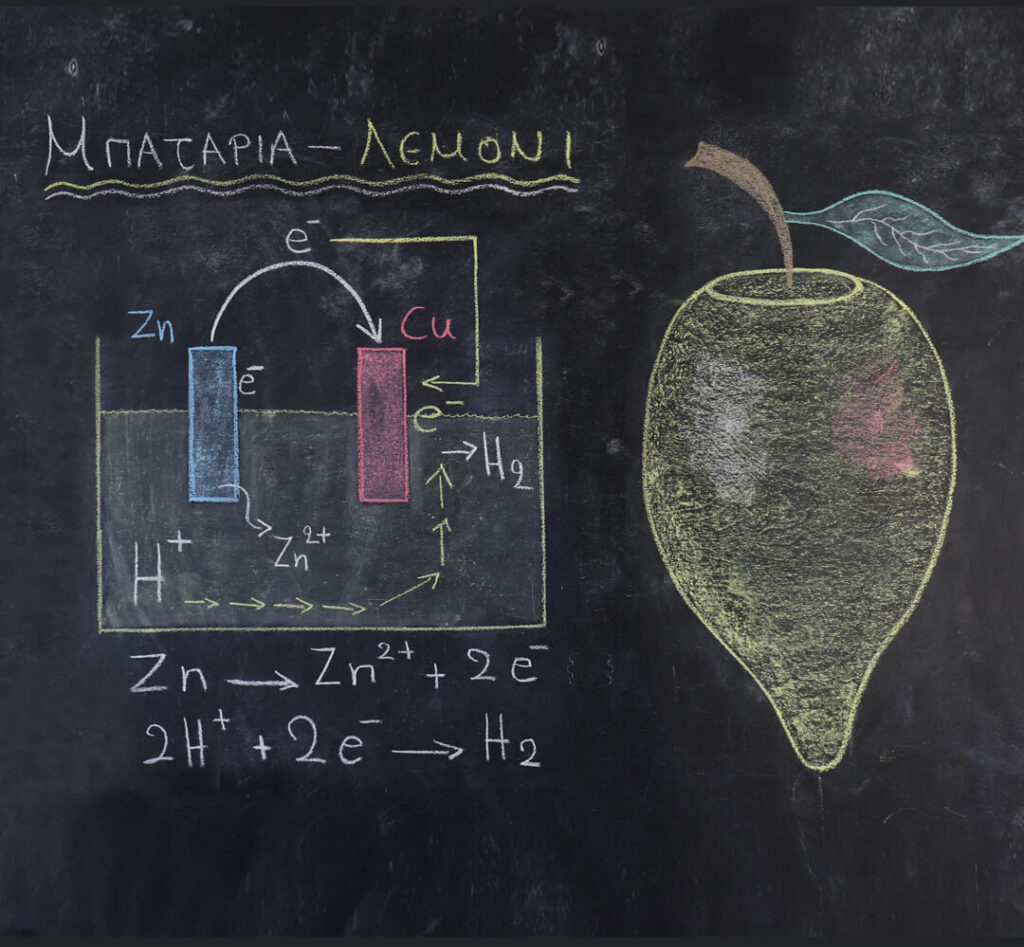 ΜΠΑΤΑΡΙΑ – ΛΕΜΟΝΙ
e⁻
Zn
Cu
e⁻
e⁻
H₂
Zn²⁺
H⁺
Zn → Zn²⁺ + 2e⁻
2H⁺ + 2e⁻ → H₂